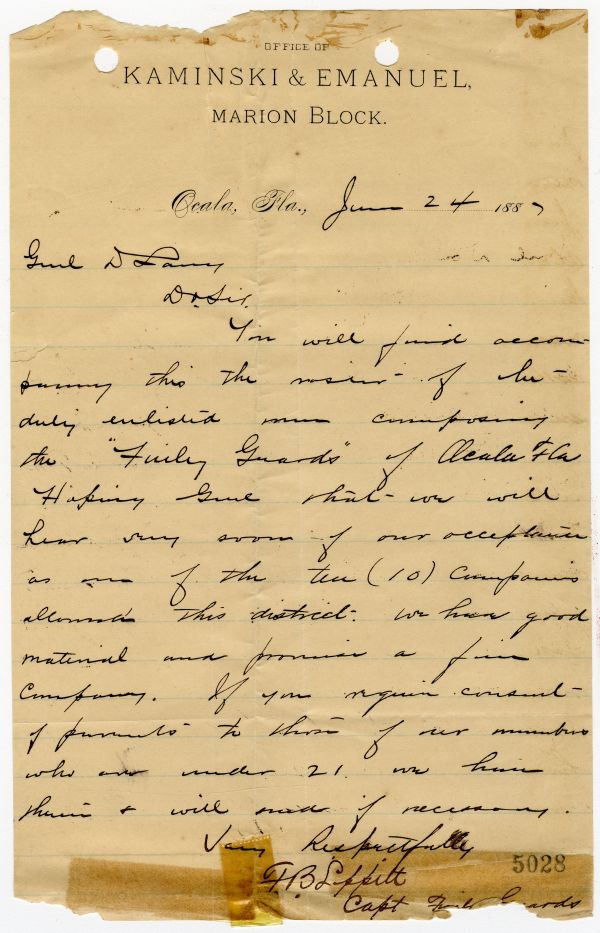 OFFICE OF
KAMINSKI & EMANUEL,
MARION BLOCK.
Ocala, Fla., June 24 1887
Genl D Lang
Dr Sir.
You will find accom
panying this the roster of the
duly enlisted men composing
the "Finley Guards" of Ocala Fla
Hoping Genl that we will
hear very soon of our acceptance
as one of the ten (10) Companies
allowed this district. We have good
material and promise a fine
Company. If you require consent
of parents to those of our members
who are under 21. we have
them & will send if necessary.
Very Respectfully
F.B. Lippitt
Capt Finley Guards
5028